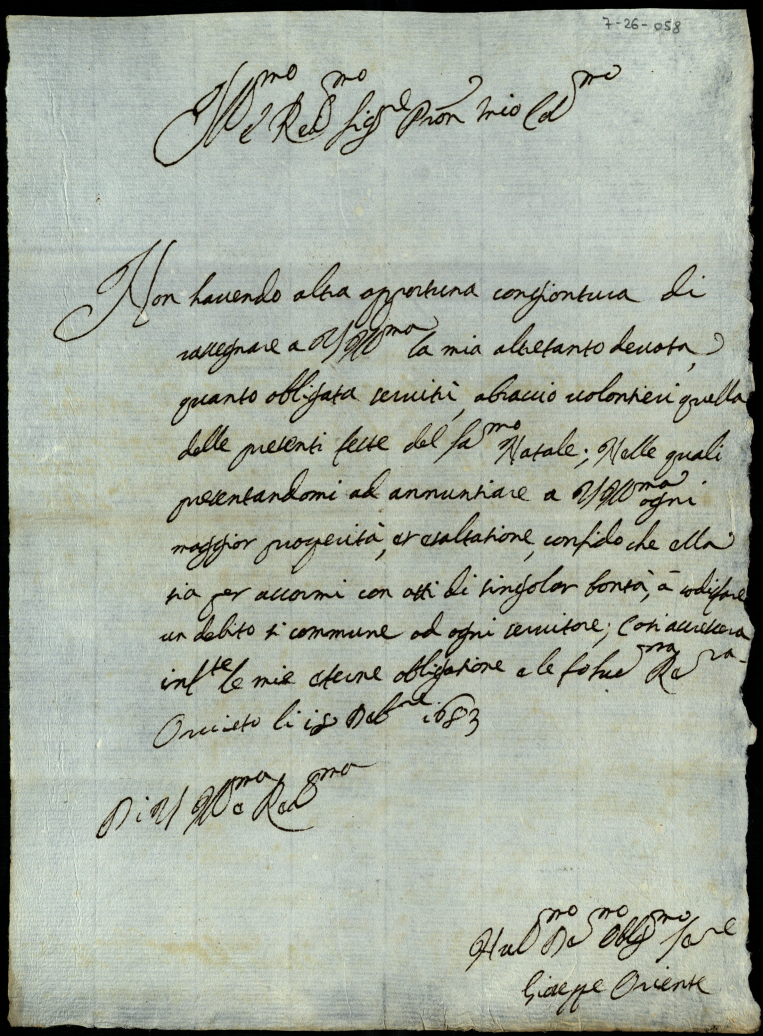 7-26-058
Ill.mo e Rev.mo Sig.re Pron mio Col.mo
Non havendo altra opportuna congiontura di
rassegnare a V S Ill.ma la mia altretanto devota,
quanto obligata servitù, abraccio volontieri quella
delle presenti feste del Sa.mo Natale; Nelle quali
presentandomi ad annuntiare a V S Ill.ma ogni
maggior prosperità, et esaltatione, confido che ella
sia per accormi con atti di singolar bontà, à sodisfare
un debito si commune ad ogni servitore; Così accrescerà
inf.te le mie eterne obligatione e le fo hu.ma Re.ra
Orvieto li 18 Xcb.re 1683
Di V S Ill.ma e Rev.ma
Hul.mo De.mo Oblig.mo Se.re
Gioseppe Oriente